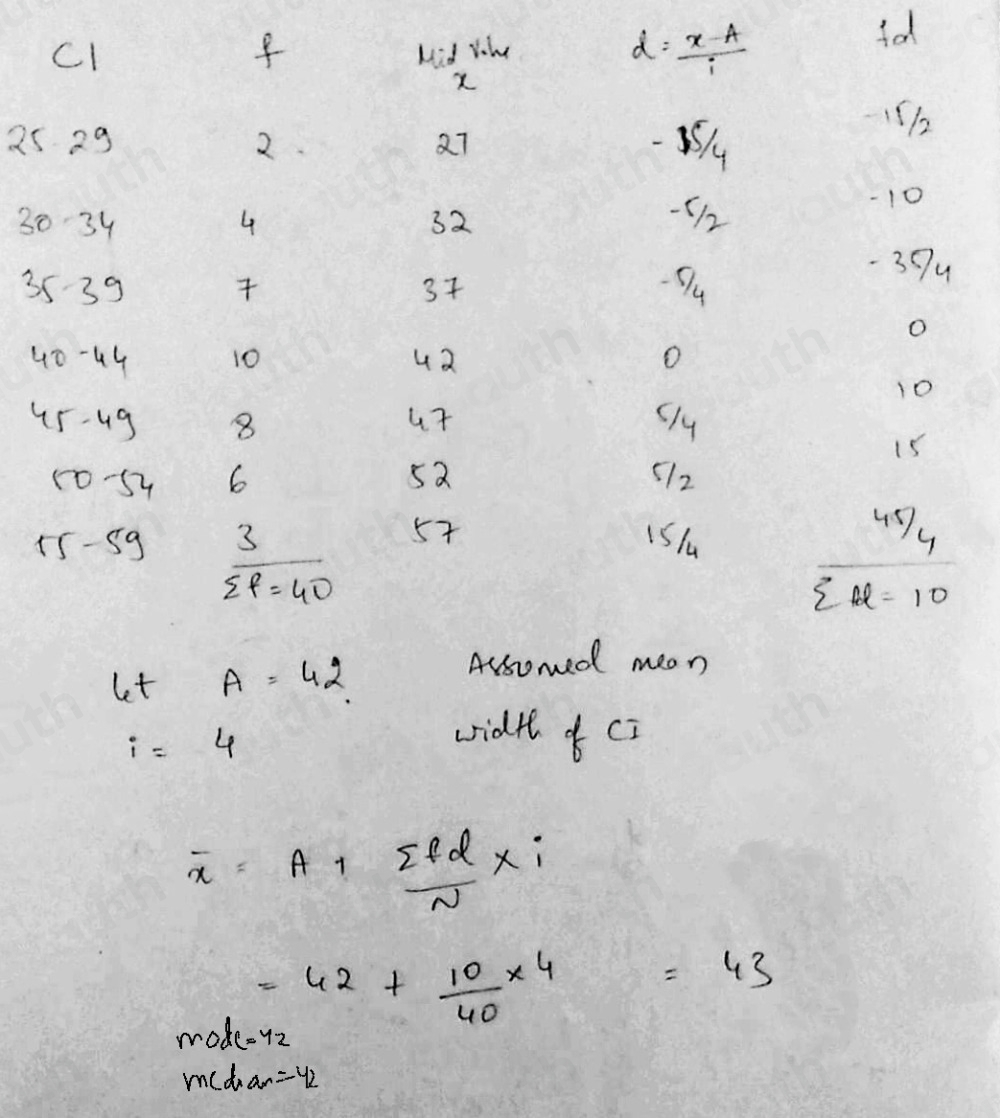 CI f Mid Value x d = x-A / i fd
25-29 2 27 -15/4 -15/2
30-34 4 32 -5/2 -10
35-39 7 37 -5/4 -35/4
40-44 10 42 0 0
45-49 8 47 5/4 10
50-54 6 52 5/2 15
55-59 3 57 15/4 45/4
Σf = 40 Σfd = 10
let A = 42. Assumed mean
i = 4 width of CI
x̄ = A + Σfd / N × i
= 42 + 10 / 40 × 4 = 43
mode=42
median=42